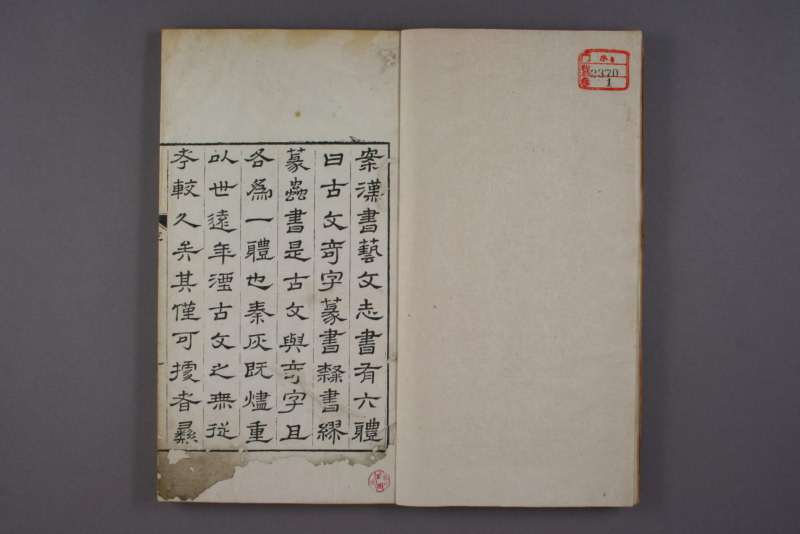 2370
1
案漢書藝文志書有六體
曰古文奇字篆書隸書繆
篆蟲書是古文與奇字且
各為一體也秦灰既燼重
以世遠年湮古文之無從
考較久矣其僅可據者彝